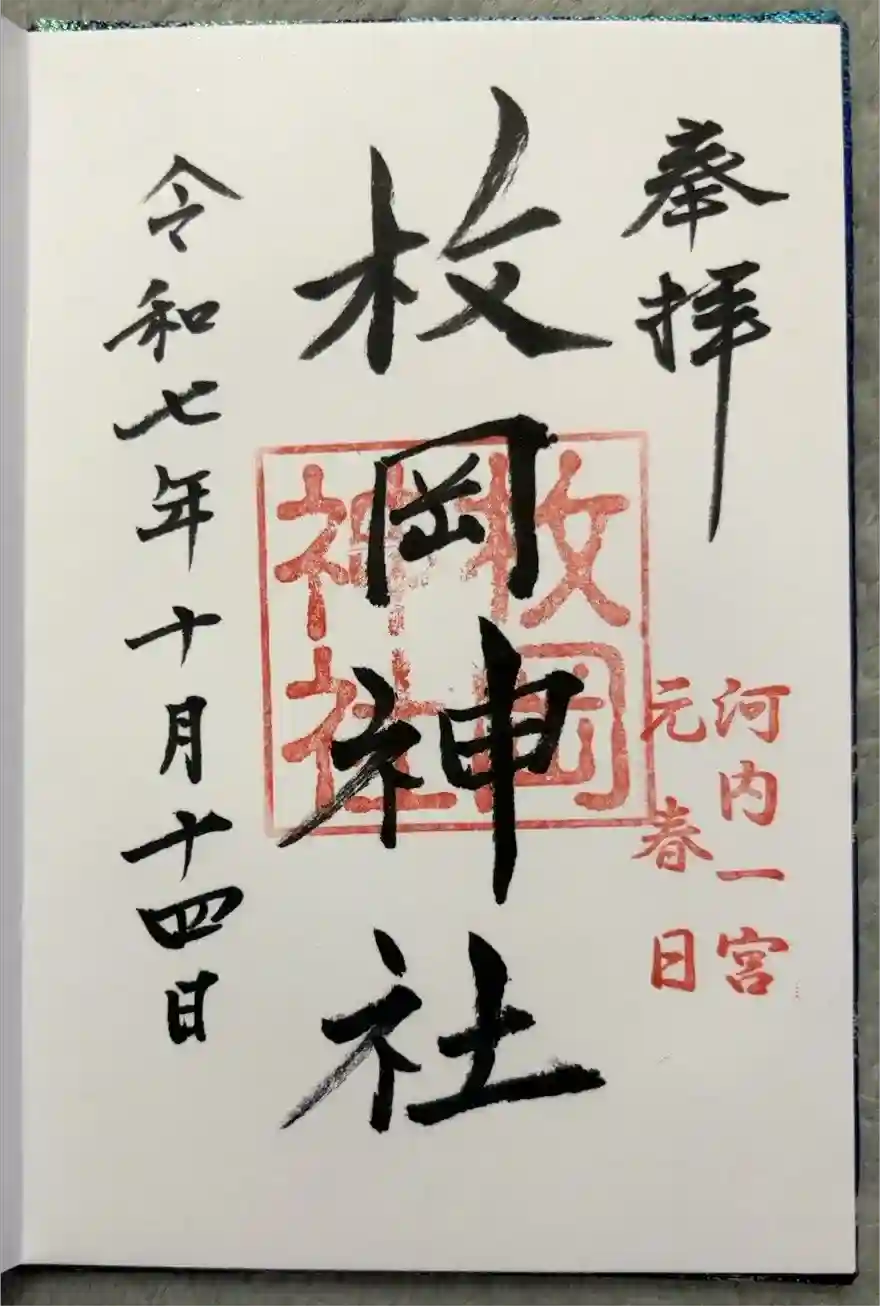 奉拝
河内一宮
元春日
枚岡神社
枚岡
神社
令和七年十月十四日